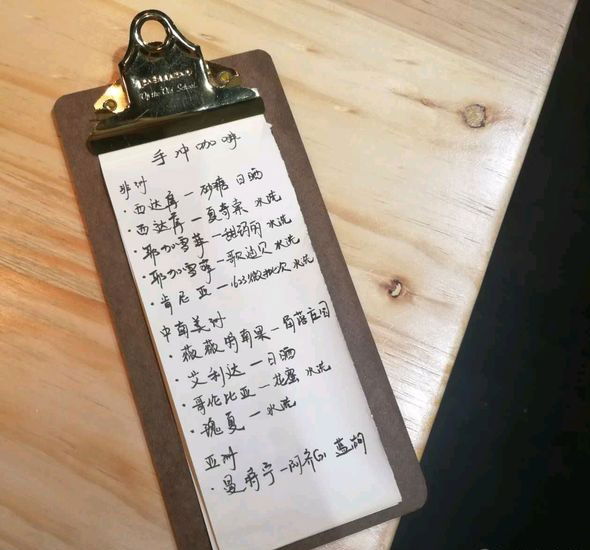 Up the Old School
手冲咖啡
非洲
·西达摩—砂糖 日晒
·西达摩—夏奇索 水洗
·耶加雪菲—甜玛丽 水洗
·耶加雪菲—歌迪贝 水洗
·肯尼亚—1623微批次 水洗
中南美洲
·薇薇特南果—茵赫庄园
·艾利达—日晒
·哥伦比亚—花蜜 水洗
·瑰夏—水洗
亚洲
·曼特宁—阿齐G1 蓝湖